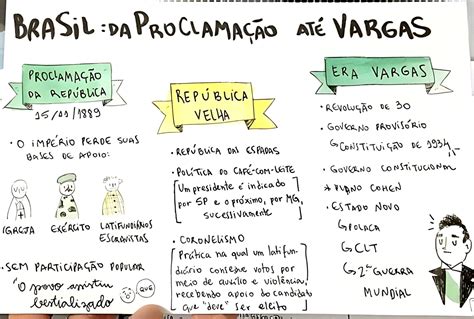 BRASIL: DA PROCLAMAÇÃO ATÉ VARGAS
PROCLAMAÇÃO
DA REPÚBLICA
15/11/1889
• O IMPÉRIO PERDE SUAS
BASES DE APOIO:
IGREJA
EXÉRCITO
LATIFUNDIÁRIOS
ESCRAVISTAS
• SEM PARTICIPAÇÃO POPULAR
"O povo assistiu
bestializado
QUE
REPÚBLICA
VELHA
• REPÚBLICA DAS ESPADAS
• POLÍTICA DO CAFÉ-COM-LEITE
Um presidente é indicado
por SP e o próximo, por MG,
sucessivamente
• CORONELISMO
Prática na qual um latifun-
diário consegue votos por
meio de auxílio e violência,
recebendo apoio do candidato
que "deve" ser eleito
ERA VARGAS
• REVOLUÇÃO DE 30
• GOVERNO PROVISÓRIO
CONSTITUIÇÃO DE 1934
• GOVERNO CONSTITUCIONAL
* PLANO COHEN
• ESTADO NOVO
POLACA
CLT
2ª GUERRA
MUNDIAL